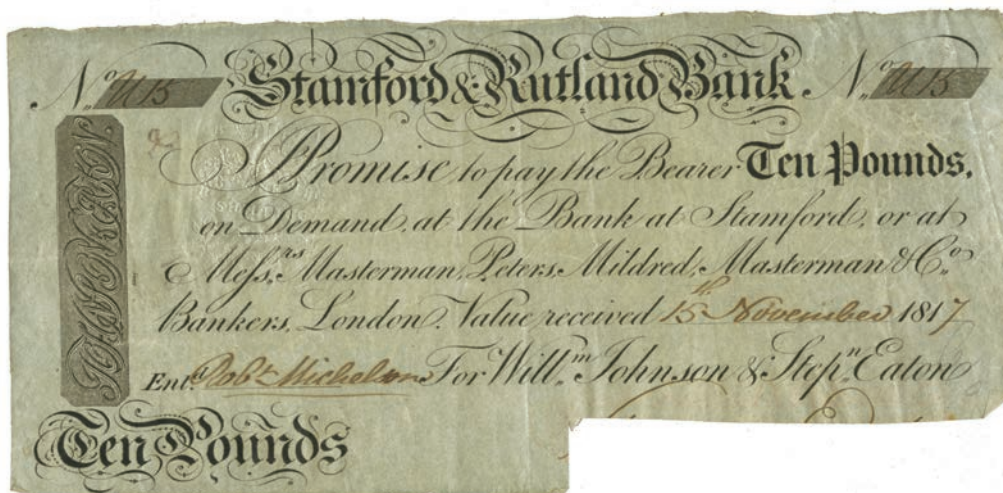 No. U15 Stamford & Rutland Bank. No. U15
I Promise to pay the Bearer Ten Pounds,
on Demand, at the Bank at Stamford, or at
Mefs.rs Masterman, Peters, Mildred, Masterman & Co.
Bankers, London. Value received 15th November 1817
Ent. Robt Michelson For Will.m Johnson & Step.n Eaton
Ten Pounds